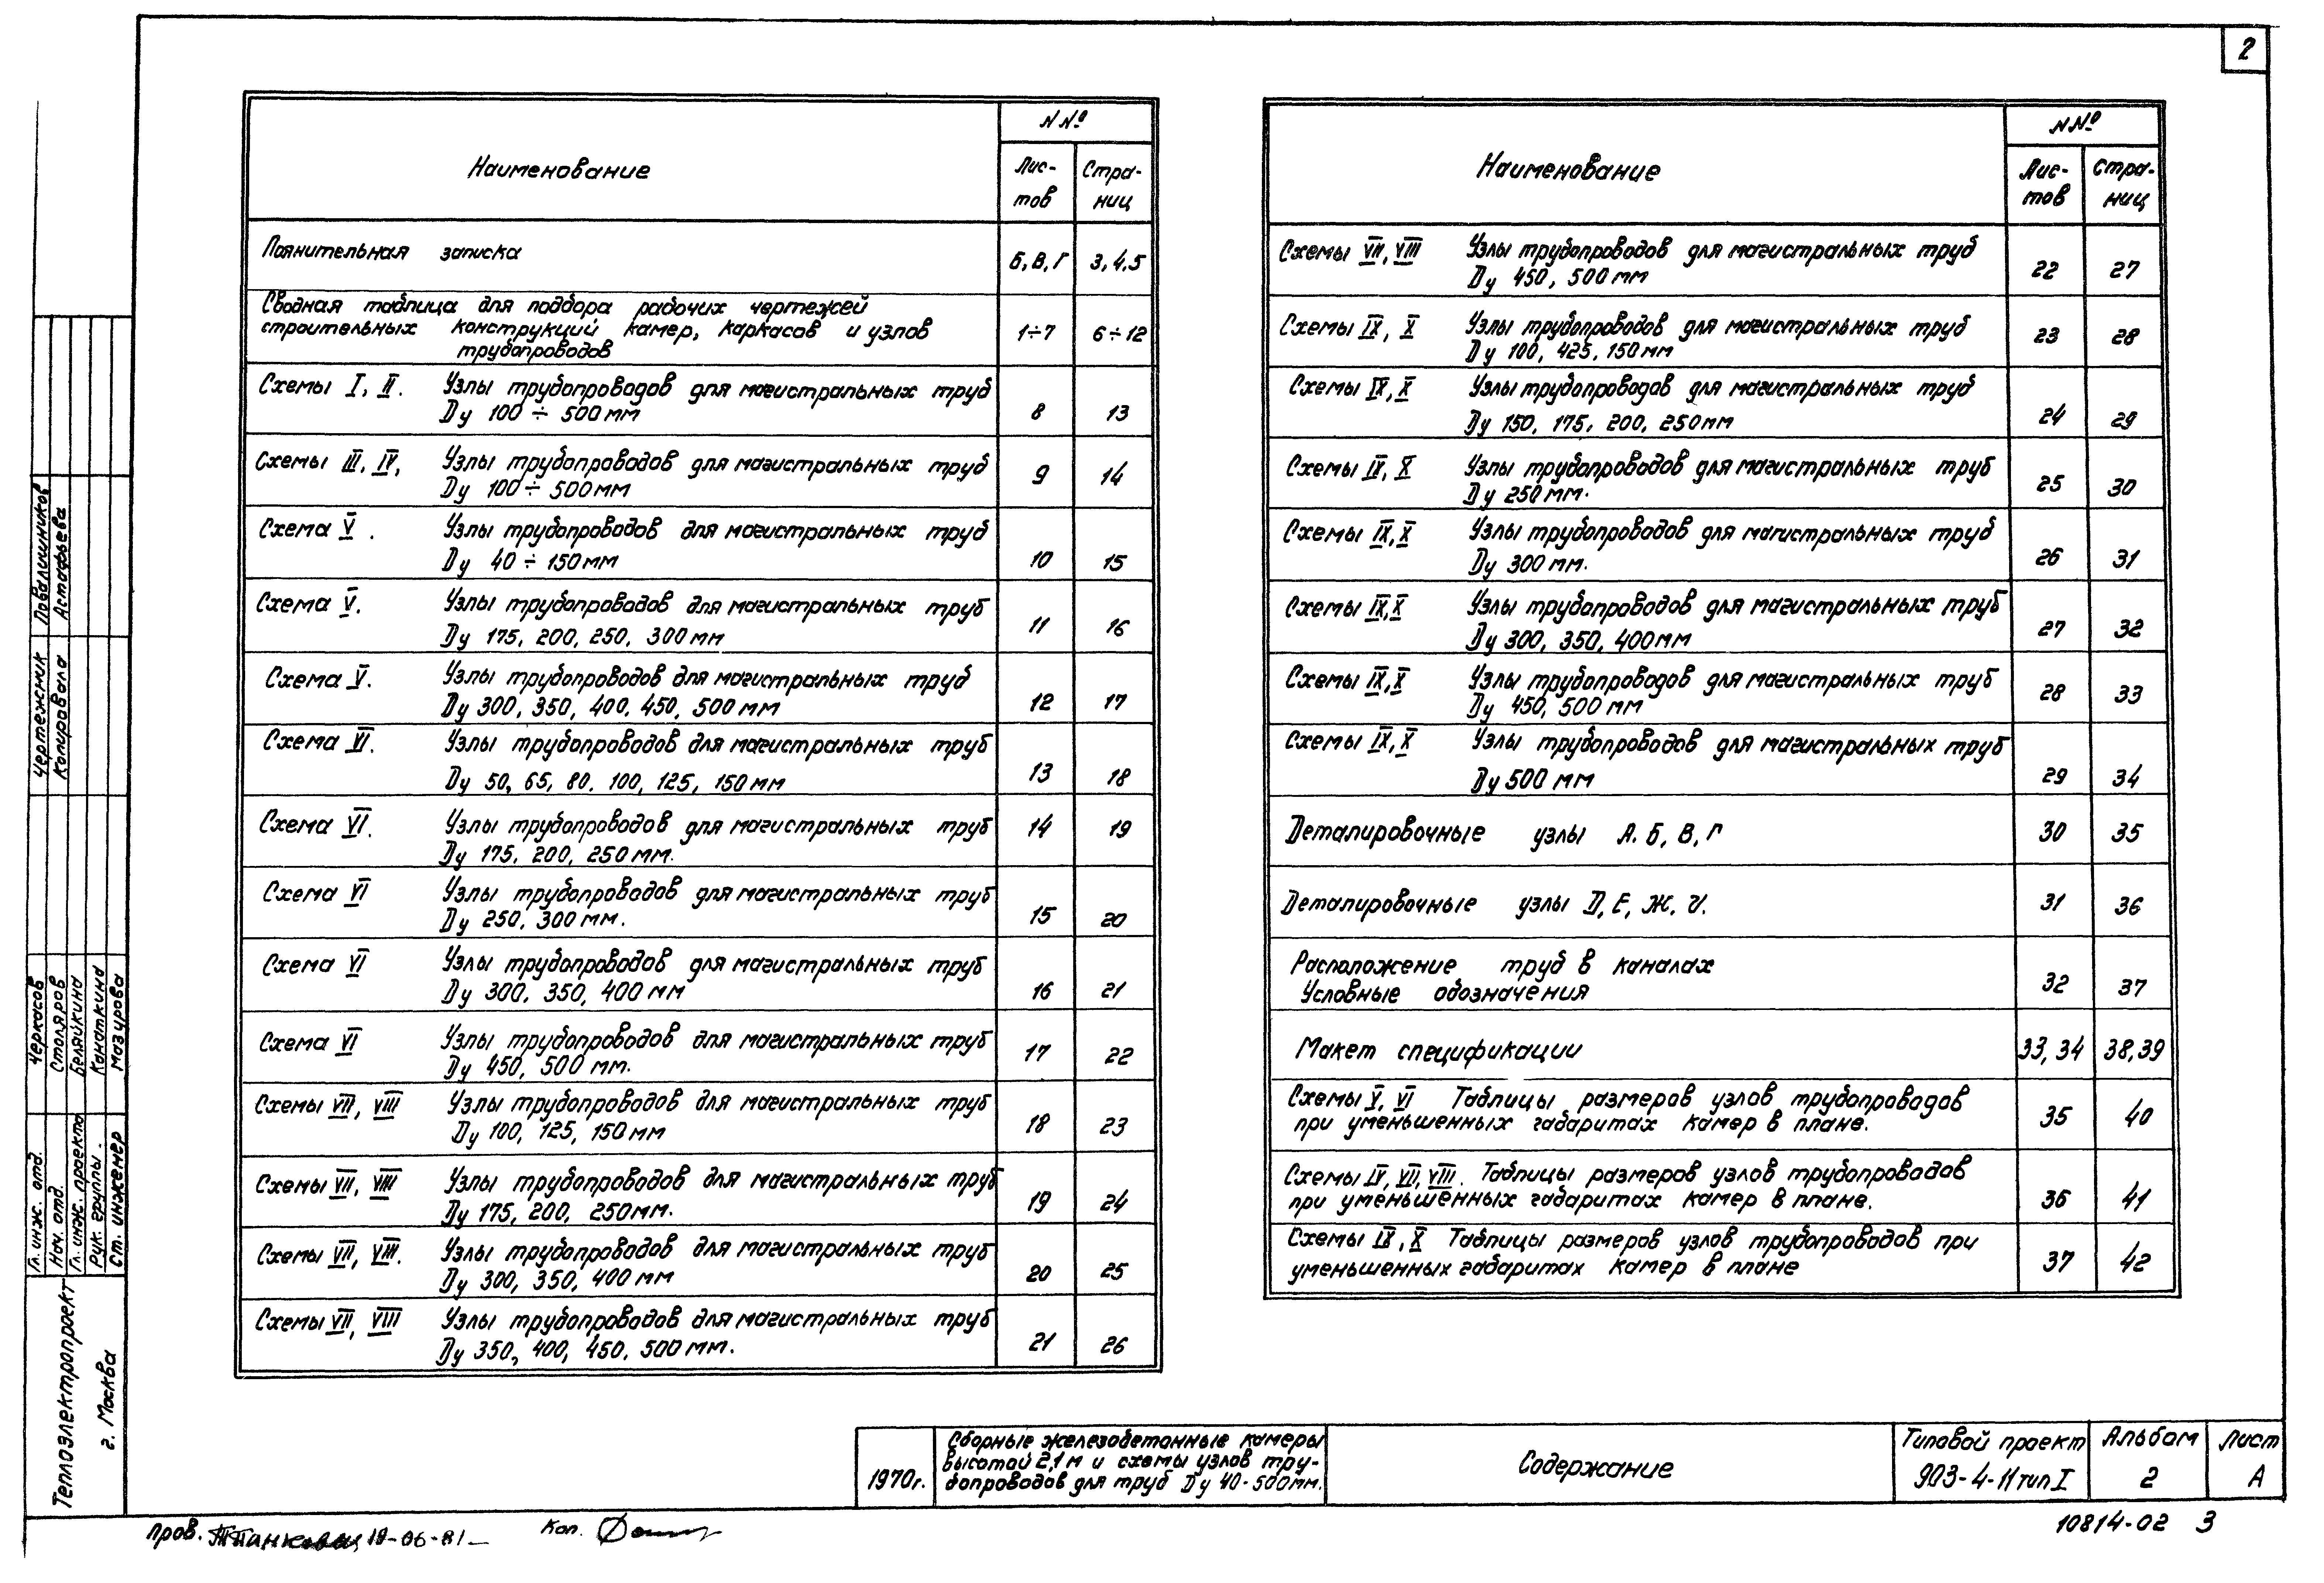 2
Наименование
N №
Лис-
тов
Стра-
ниц
Поянительная записка
Б, В, Г
3, 4, 5
Сводная таблица для подбора рабочих чертежей
строительных конструкций камер, каркасов и узлов
трубопроводов
1÷7
6÷12
Схемы I, II. Узлы трубопроводов для магистральных труб
Dу 100 ÷ 500 мм
8
13
Схемы III, IV, Узлы трубопроводов для магистральных труб
Dу 100 ÷ 500 мм
9
14
Схема V . Узлы трубопроводов для магистральных труб
Dу 40 ÷ 150 мм
10
15
Схема V. Узлы трубопроводов для магистральных труб
Dу 175, 200, 250, 300 мм
11
16
Схема V. Узлы трубопроводов для магистральных труб
Dу 300, 350, 400, 450, 500 мм
12
17
Схема VI. Узлы трубопроводов для магистральных труб
Dу 50, 65, 80, 100, 125, 150 мм
13
18
Схема VI. Узлы трубопроводов для магистральных труб
Dу 175, 200, 250 мм.
14
19
Схема VI Узлы трубопроводов для магистральных труб
Dу 250, 300 мм.
15
20
Схема VI Узлы трубопроводов для магистральных труб
Dу 300, 350, 400 мм
16
21
Схема VI Узлы трубопроводов для магистральных труб
Dу 450, 500 мм.
17
22
Схемы VII, VIII Узлы трубопроводов для магистральных труб
Dу 100, 125, 150 мм
18
23
Схемы VII, VIII Узлы трубопроводов для магистральных труб
Dу 175, 200, 250 мм.
19
24
Схемы VII, VIII. Узлы трубопроводов для магистральных труб
Dу 300, 350, 400 мм
20
25
Схемы VII, VIII Узлы трубопроводов для магистральных труб
Dу 350, 400, 450, 500 мм.
21
26
Наименование
N №
Лис-
тов
Стра-
ниц
Схемы VII, VIII Узлы трубопроводов для магистральных труб
Dу 450, 500 мм
22
27
Схемы IX, X Узлы трубопроводов для магистральных труб
Dу 100, 425, 150 мм
23
28
Схемы IX, X Узлы трубопроводов для магистральных труб
Dу 150, 175, 200, 250 мм
24
29
Схемы IX, X Узлы трубопроводов для магистральных труб
Dу 250 мм.
25
30
Схемы IX, X Узлы трубопроводов для магистральных труб
Dу 300 мм.
26
31
Схемы IX, X Узлы трубопроводов для магистральных труб
Dу 300, 350, 400 мм
27
32
Схемы IX, X Узлы трубопроводов для магистральных труб
Dу 450, 500 мм
28
33
Схемы IX, X Узлы трубопроводов для магистральных труб
Dу 500 мм
29
34
Деталировочные узлы А, Б, В, Г
30
35
Деталировочные узлы D, Е, Ж, И.
31
36
Расположение труб в каналах
Условные обозначения
32
37
Макет спецификации
33, 34
38, 39
Схемы V, VI Таблицы размеров узлов трубопроводов
при уменьшенных габаритах камер в плане.
35
40
Схемы IV, VII, VIII. Таблицы размеров узлов трубопроводов
при уменьшенных габаритах камер в плане.
36
41
Схемы IX, X Таблицы размеров узлов трубопроводов при
уменьшенных габаритах камер в плане
37
42
Чертежник Повалишников
Копировала Астафьева
Гл. инж. отд. Черкасов
Нач. отд. Столяров
Гл. инж. проекта Беляйкина
Рук. группы. Канаткина
Ст. инженер Мазурова
Теплоэлектропроект
г. Москва
1970г.
Сборные железобетонные камеры
высотой 2,1 м и схемы узлов тру-
бопроводов для труб Dу 40-500мм.
Содержание
Типовой проект
903-4-11 тип I
Альбом
2
Лист
А
Пров. 18-06-81
Коп.
10814-02 3